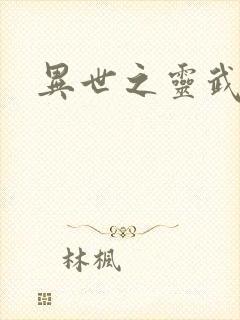 異世之靈武
林楓